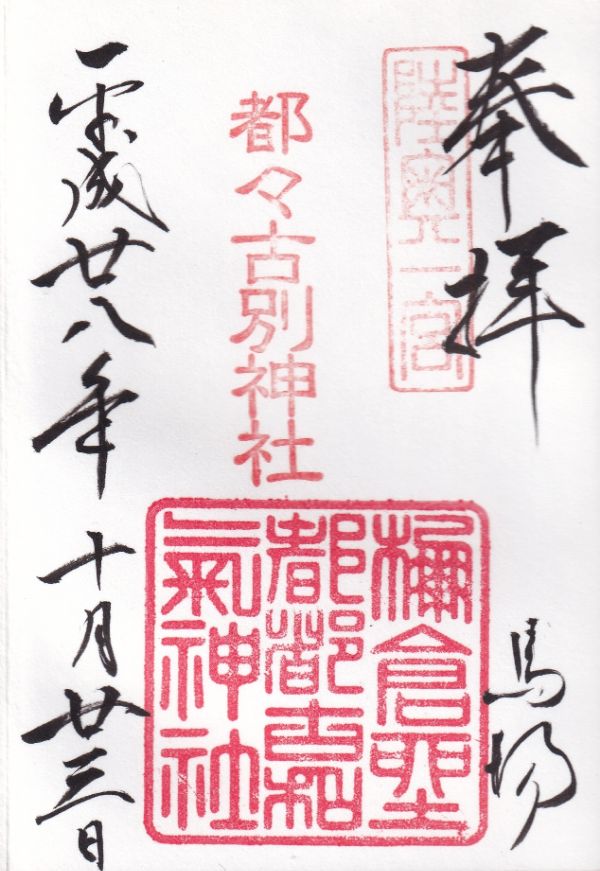 奉拝
陸奥一宮
馬場
都々古別神社
倉
都都古和
氣神社
平成廿八年十月廿三日